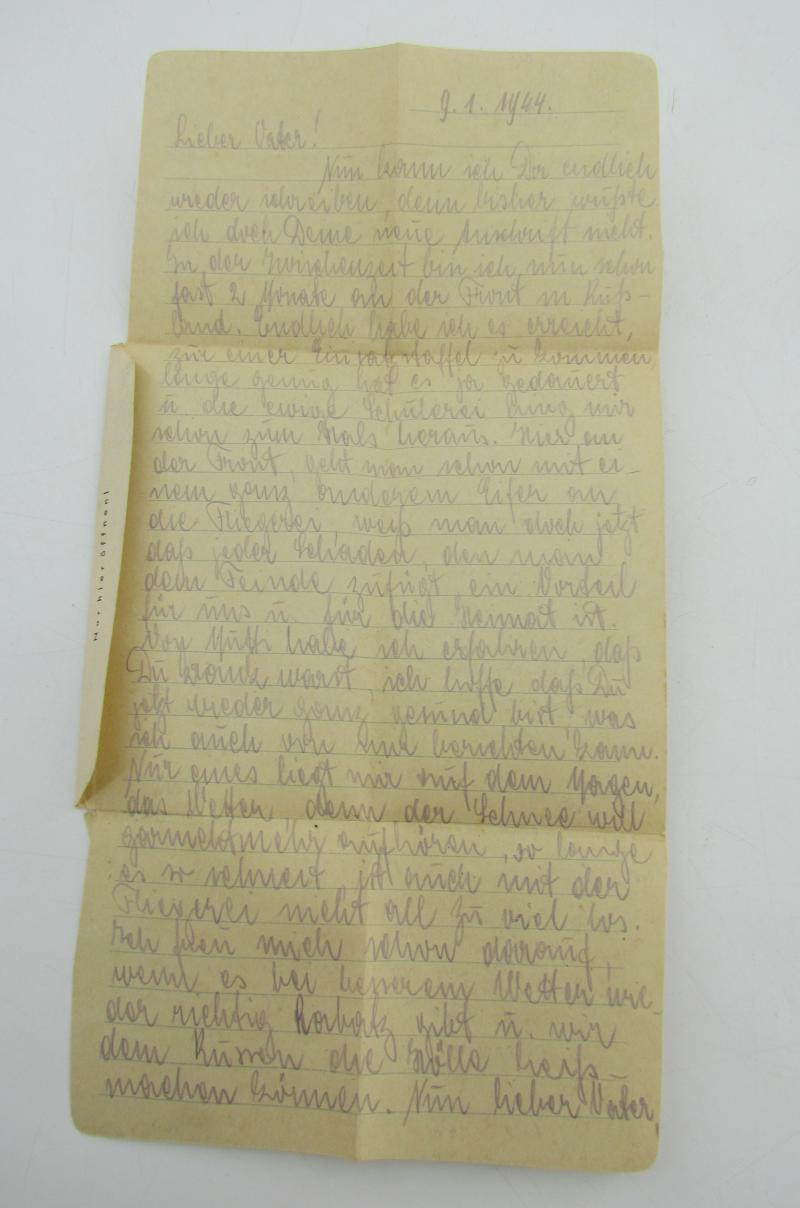 9. 1. 1944.
Lieber Vater!
Nun kann ich Dir endlich
wieder schreiben, denn bisher wußte
ich doch Deine neue Anschrift nicht.
In der Zwischenzeit bin ich nun schon
fast 2 Monate an der Front in Ruß-
land. Endlich habe ich es erreicht,
zu einer Einsatzstaffel zu kommen,
lange genug hat es ja gedauert
u. die ewige Schulerei hing mir
schon zum Hals heraus. Hier an
der Front, geht man schon mit ei-
nem ganz anderem Eifer an
die Fliegerei, weiß man doch jetzt
daß jeder Schaden, den man
dem Feinde zufügt ein Vorteil
für uns u. für die Heimat ist.
Von Mutti habe ich erfahren, daß
Du krank warst, ich hoffe daß Du
jetzt wieder ganz gesund bist was
ich auch von mir berichten kann.
Nur eines liegt mir auf dem Magen,
das Wetter, denn der Schnee will
garnichtmehr aufhören, so lange
es so schneit ist auch mit der
Fliegerei nicht all zu viel los.
Ich freu mich schon darauf,
wenn es bei besserem Wetter wie-
der richtig Rabatz gibt u. wir
dem Russen die Hölle heiß-
machen können. Nun lieber Vater,
Nur hier öffnen!